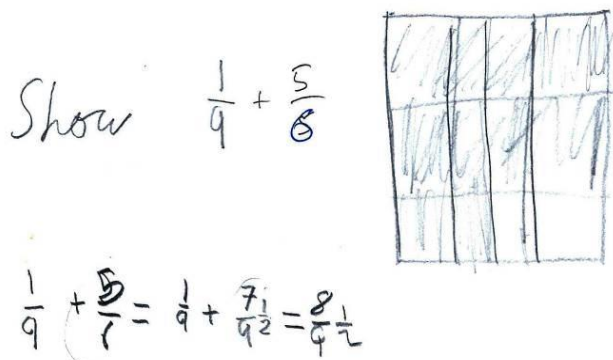 Show 1/9 + 5/6
1/9 + 5/6 = 1/9 + 7 1/2/9 = 8 1/2/9